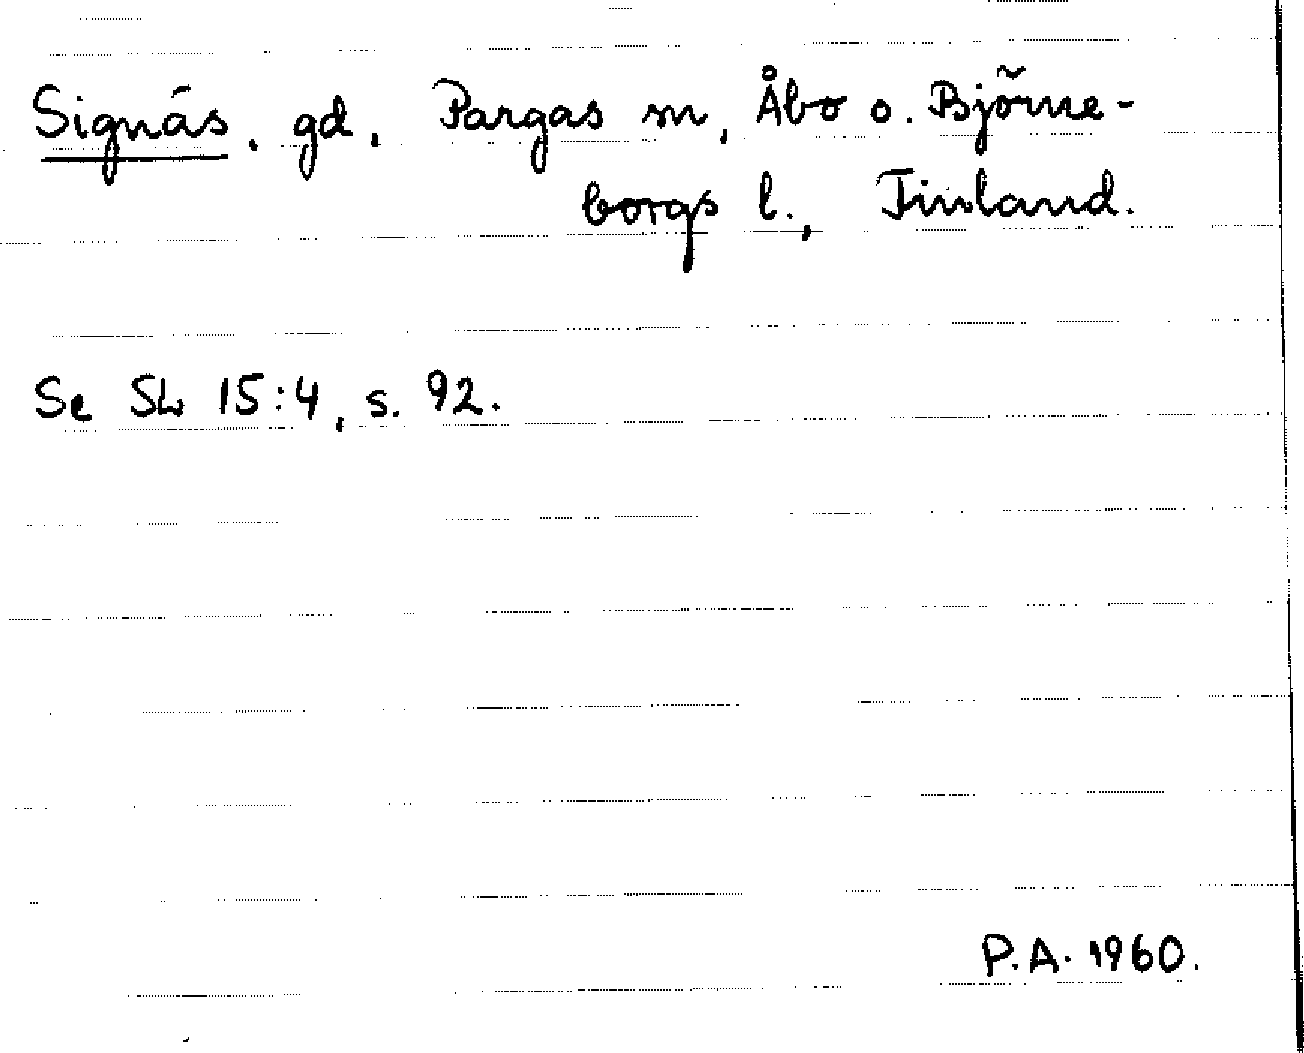 Signäs, gd, Pargas sn, Åbo o. Björne-
borgs l., Finland.
Se Sh 15:4, s. 92.
P.A. 1960.